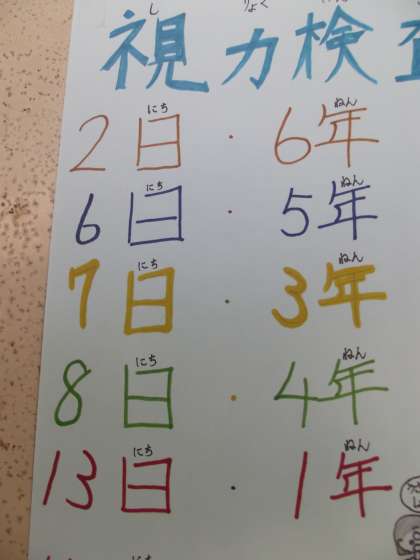 視力検査
2日・6年
6日・5年
7日・3年
8日・4年
13日・1年